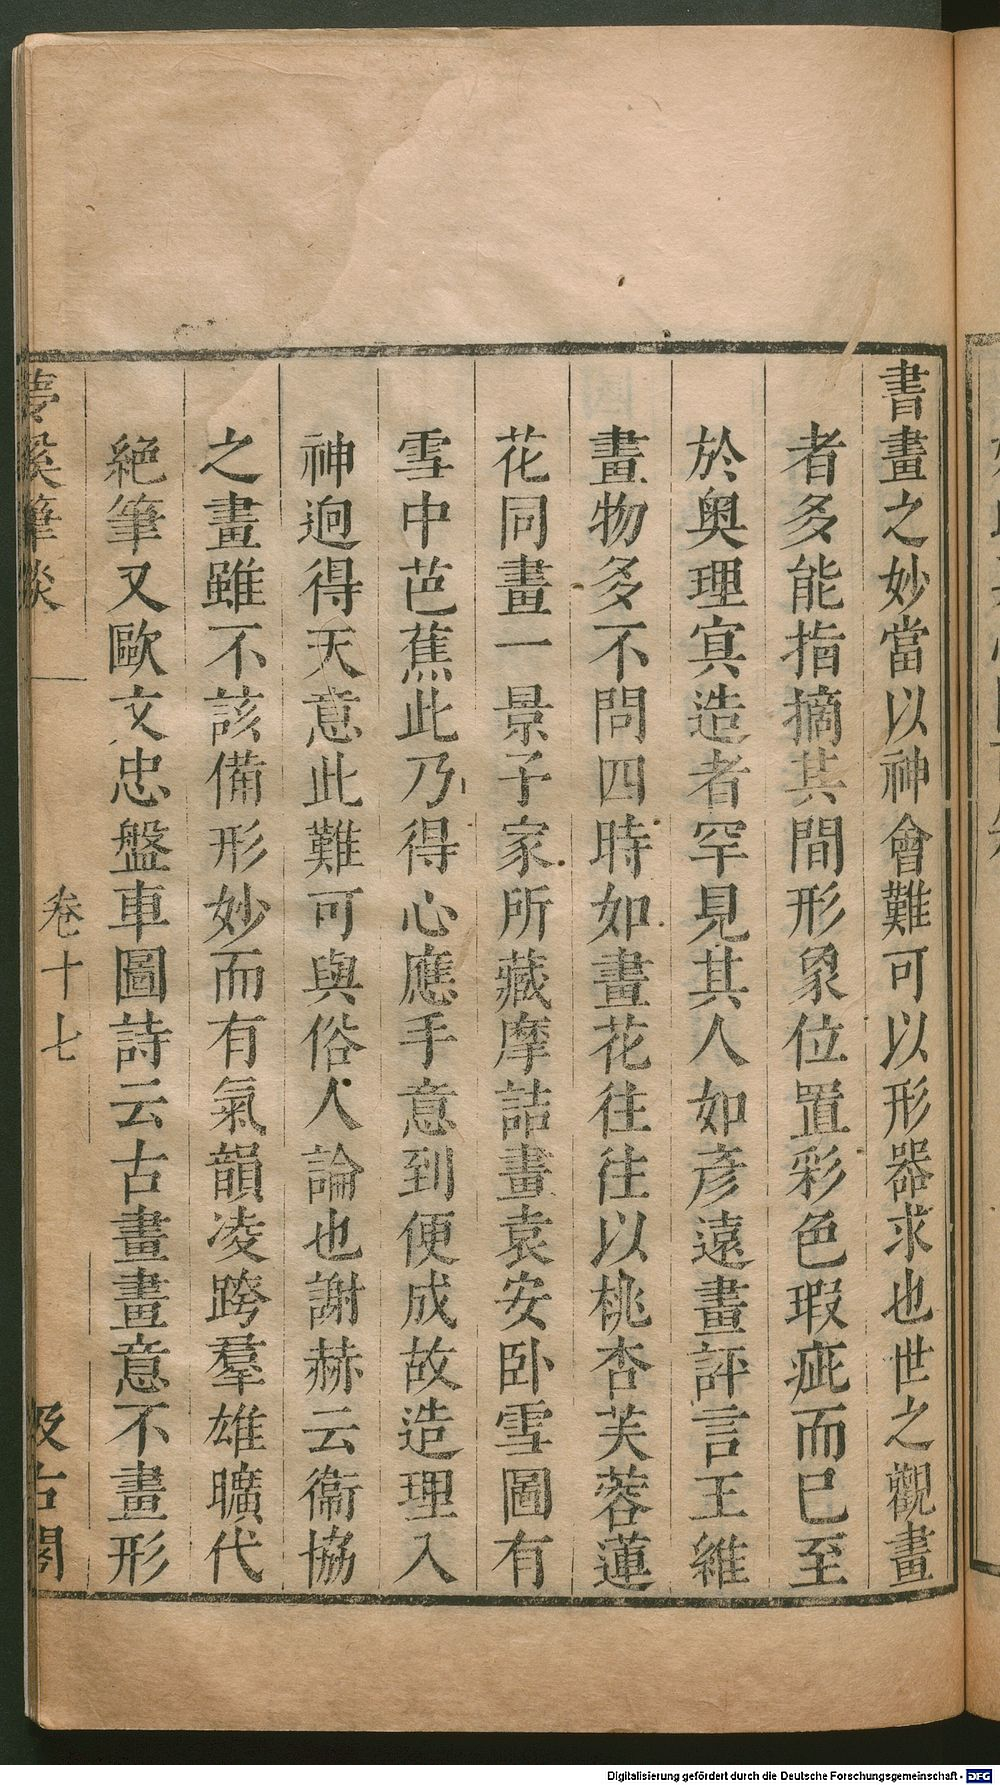 書畫之妙當以神會難可以形器求也世之觀畫
者多能指摘其間形象位置彩色瑕疵而已至
於奥理冥造者罕見其人如彥遠畫評言王維
畫物多不問四時如畫花往往以桃杏芙蓉蓮
花同畫一景子家所藏摩詰畫袁安卧雪圖有
雪中芭蕉此乃得心應手意到便成故造理入
神迥得天意此難可與俗人論也謝赫云衞協
之畫雖不該備形妙而有氣韻凌跨羣雄曠代
絕筆又歐文忠盤車圖詩云古畫畫意不畫形
夢溪筆談
卷十七
汲古閣
Digitalisierung gefördert durch die Deutsche Forschungsgemeinschaft - DFG